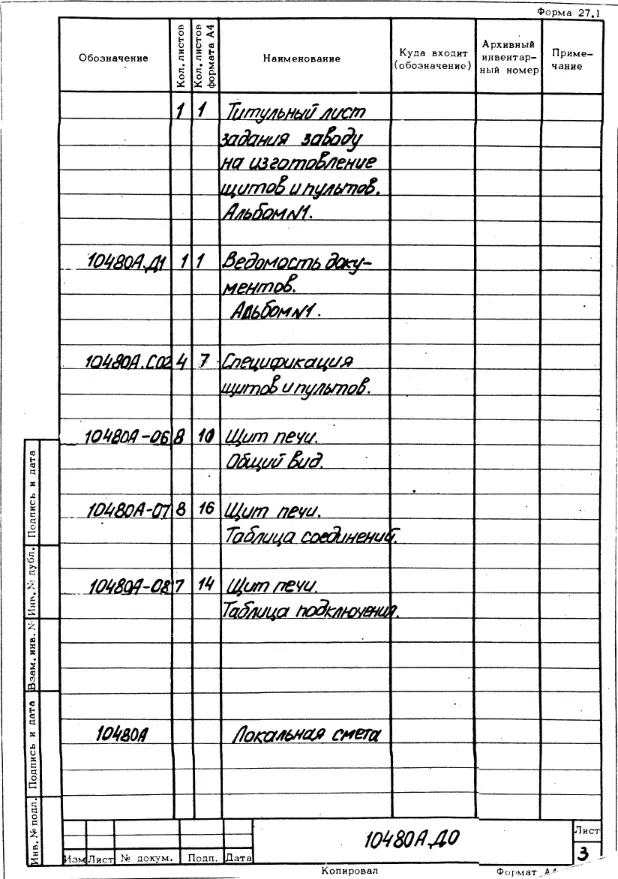 Форма 27.1
Обозначение Кол. листов Кол. листов формата А4 Наименование Куда входит (обозначение) Архивный инвентарный номер Примечание
1 1 Титульный лист
задания заводу
на изготовление
щитов и пультов.
Альбом №1.
10480А.Д1 1 1 Ведомость доку-
ментов.
Альбом №1.
10480А.С02 4 7 Спецификация
щитов и пультов.
10480А-06 8 10 Щит печи.
Общий вид.
10480А-07 8 16 Щит печи.
Таблица соединений.
10480А-08 7 14 Щит печи.
Таблица подключения.
10480А Локальная смета
Инв. № подл. Подпись и дата Взам. инв. № Инв. № публ. Подпись и дата
10480А.Д0
Лист
3
Изм Лист № докум. Подп. Дата
Копировал Формат А4